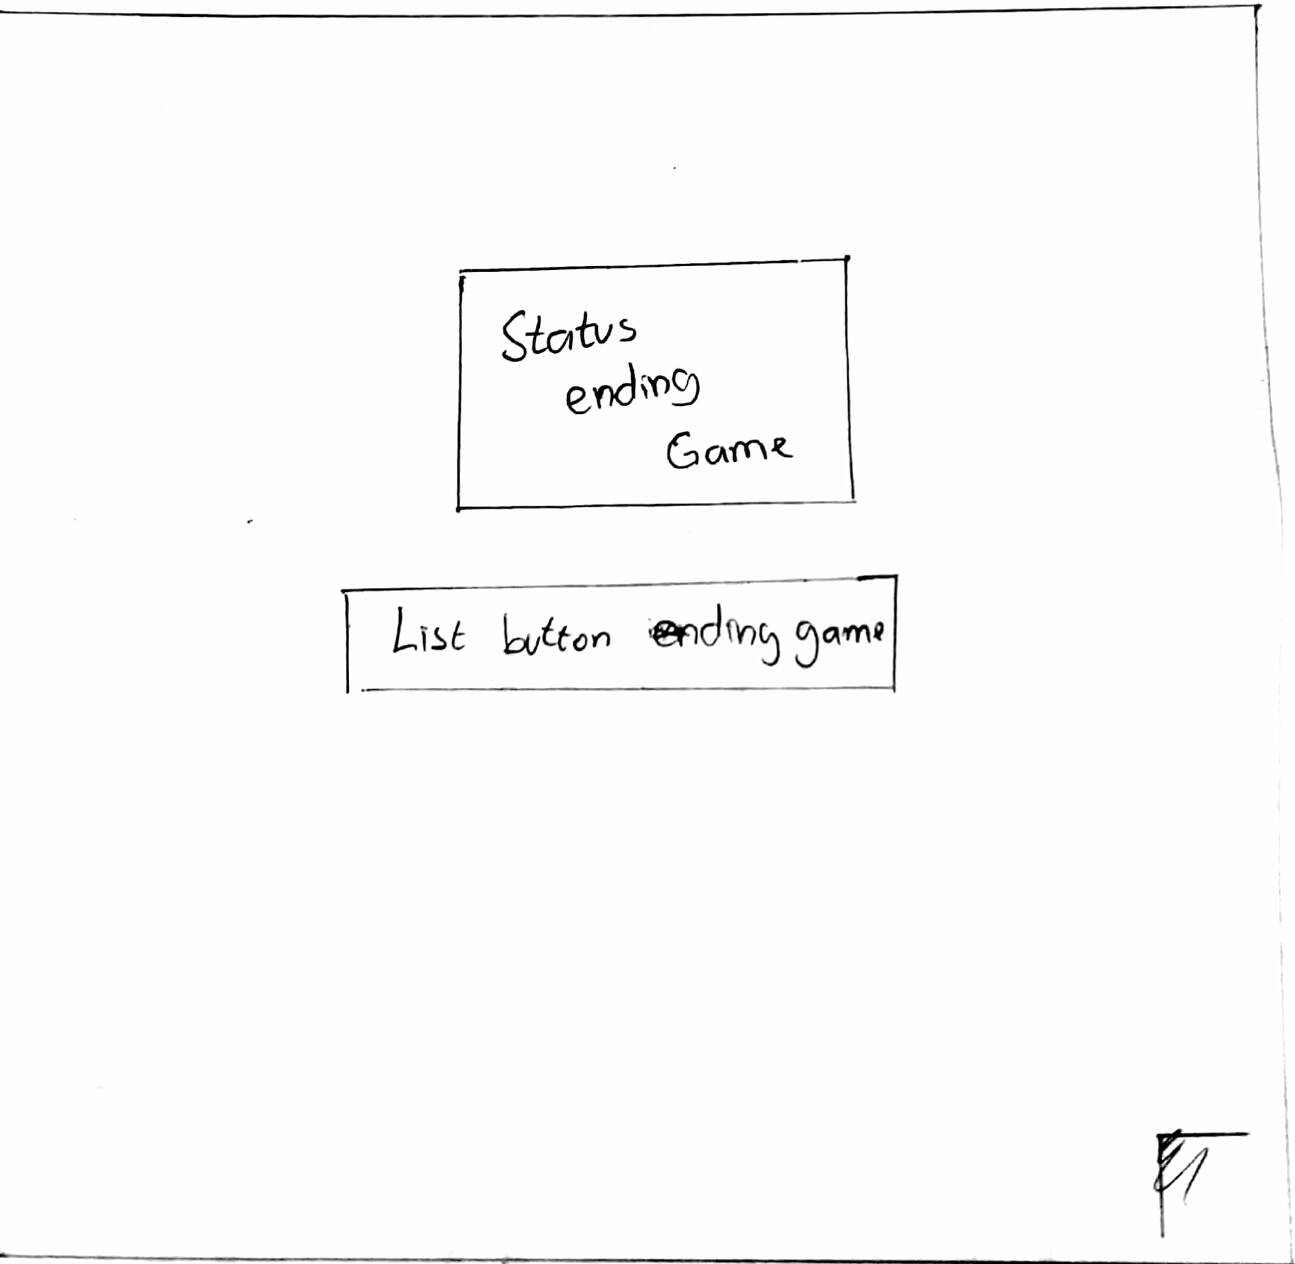 Status
ending
Game
List button ending game